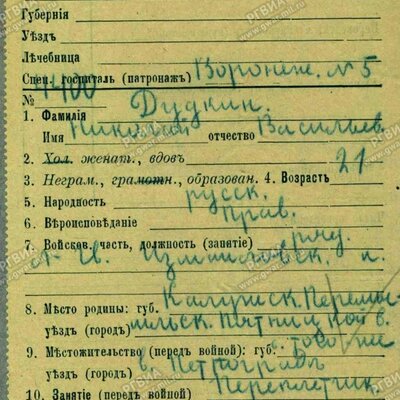 Губернія
Уѣздъ
Лѣчебница
Спец. госпиталь (патронажъ) Воронеж. № 5
№ 1400
1. Фамилія Дудкин.
Имя Николай отчество Васильев
2. Хол. женат., вдовъ
3. Неграм., грамотн., образован. 4. Возрастъ 21
5. Народность русск.
6. Вѣроисповѣданіе прав.
7. Войсков. часть, должность (занятіе) ряд.
Л. Гв. Измайловск. п.
8. Мѣсто родины: губ. Калужск. Перемы-
уѣздъ (городъ) шльск. Пятницкой в.
9. Мѣстожительство (передъ войной): губ.
уѣздъ (городъ) в Петроградѣ
10. Занятіе (передъ войной) Переплетчик